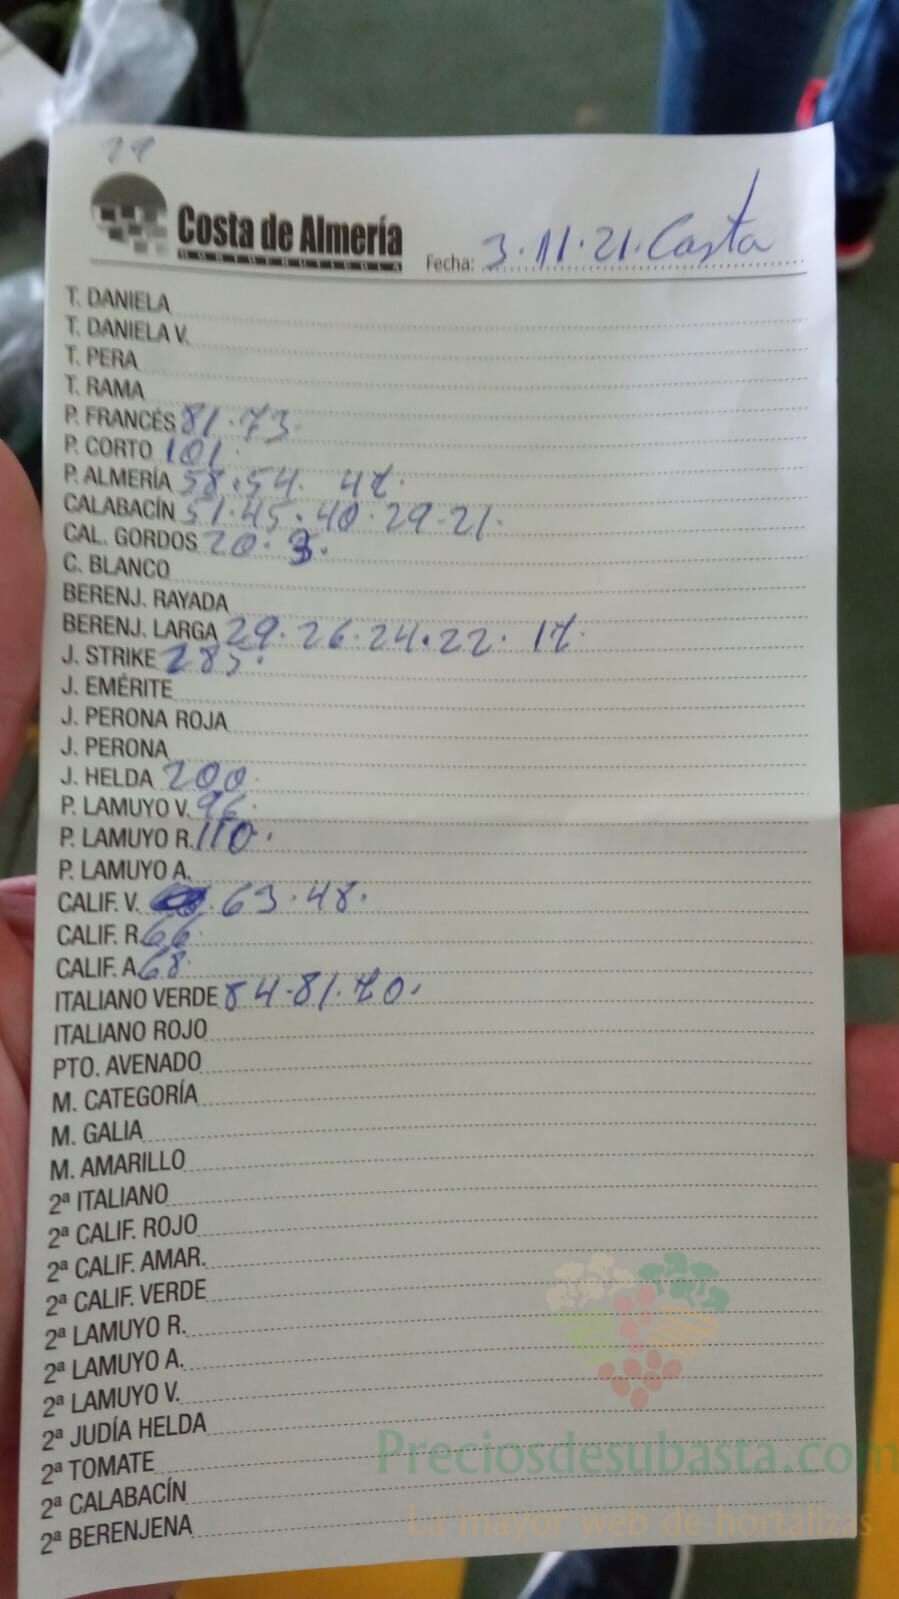 Costa de Almería
HORTOFRUTICOLA
Fecha: 3.11.21. Costa
T. DANIELA
T. DANIELA V.
T. PERA
T. RAMA
P. FRANCÉS 81.73.
P. CORTO 101.
P. ALMERÍA 58.54. 47.
CALABACÍN 51.45.40.29-21.
CAL. GORDOS 20. 3.
C. BLANCO
BERENJ. RAYADA
BERENJ. LARGA 29.26.24.22. 17.
J. STRIKE 285.
J. EMÉRITE
J. PERONA ROJA
J. PERONA
J. HELDA 200.
P. LAMUYO V. 96.
P. LAMUYO R. 110.
P. LAMUYO A.
CALIF. V. 63.48.
CALIF. R. 66.
CALIF. A. 68.
ITALIANO VERDE 84-81.70.
ITALIANO ROJO
PTO. AVENADO
M. CATEGORÍA
M. GALIA
M. AMARILLO
2ª ITALIANO
2ª CALIF. ROJO
2ª CALIF. AMAR.
2ª CALIF. VERDE
2ª LAMUYO R.
2ª LAMUYO A.
2ª LAMUYO V.
2ª JUDÍA HELDA
2ª TOMATE
2ª CALABACÍN
2ª BERENJENA
Preciosdesubasta.com
La mayor web de hortalizas